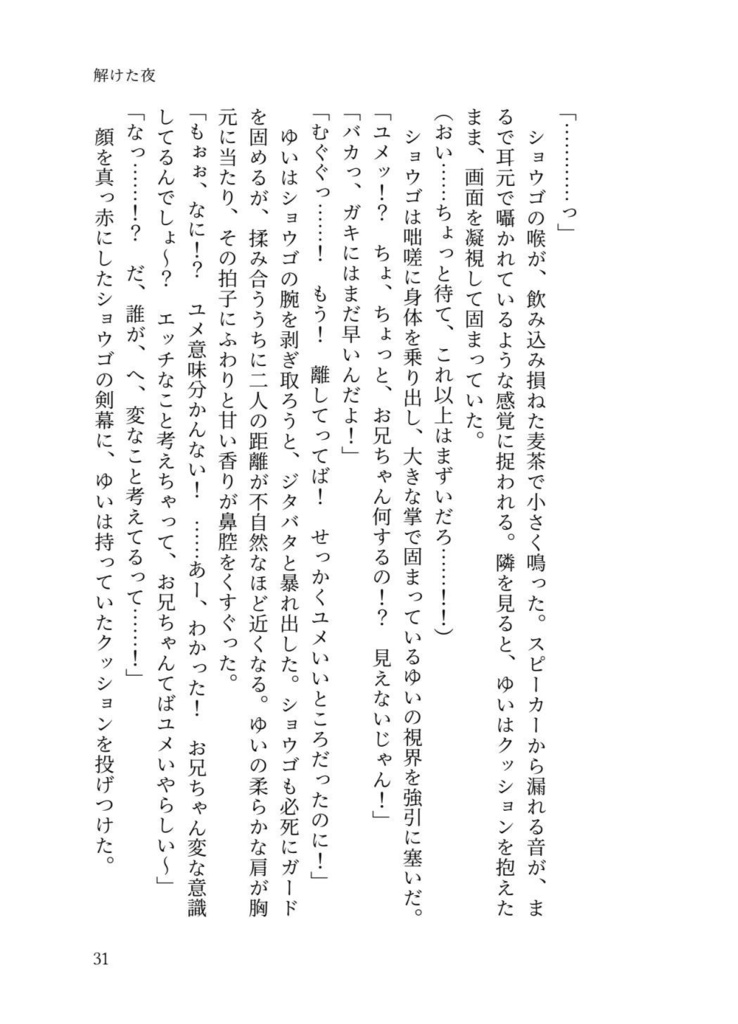 解けた夜
「…………っ」
　ショウゴの喉が、飲み込み損ねた麦茶で小さく鳴った。スピーカーから漏れる音が、ま
るで耳元で囁かれているような感覚に捉われる。隣を見ると、ゆいはクッションを抱えた
まま、画面を凝視して固まっていた。
（おい……ちょっと待て、これ以上はまずいだろ……！！）
　ショウゴは咄嗟に身体を乗り出し、大きな掌で固まっているゆいの視界を強引に塞いだ。
「ユメッ！？　ちょ、ちょっと、お兄ちゃん何するの！？　見えないじゃん！」
「バカっ、ガキにはまだ早いんだよ！」
「むぐぐっ……！　もう！　離してってば！　せっかくユメいいところだったのに！」
　ゆいはショウゴの腕を剥ぎ取ろうと、ジタバタと暴れ出した。ショウゴも必死にガード
を固めるが、揉み合ううちに二人の距離が不自然なほど近くなる。ゆいの柔らかな肩が胸
元に当たり、その拍子にふわりと甘い香りが鼻腔をくすぐった。
「もぉぉ、なに！？　ユメ意味分かんない！　……あー、わかった！　お兄ちゃん変な意識
してるんでしょ〜？　エッチなこと考えちゃって、お兄ちゃんてばユメいやらしい〜」
「なっ……！？　だ、誰が、へ、変なこと考えてるって……！」
　顔を真っ赤にしたショウゴの剣幕に、ゆいは持っていたクッションを投げつけた。
31